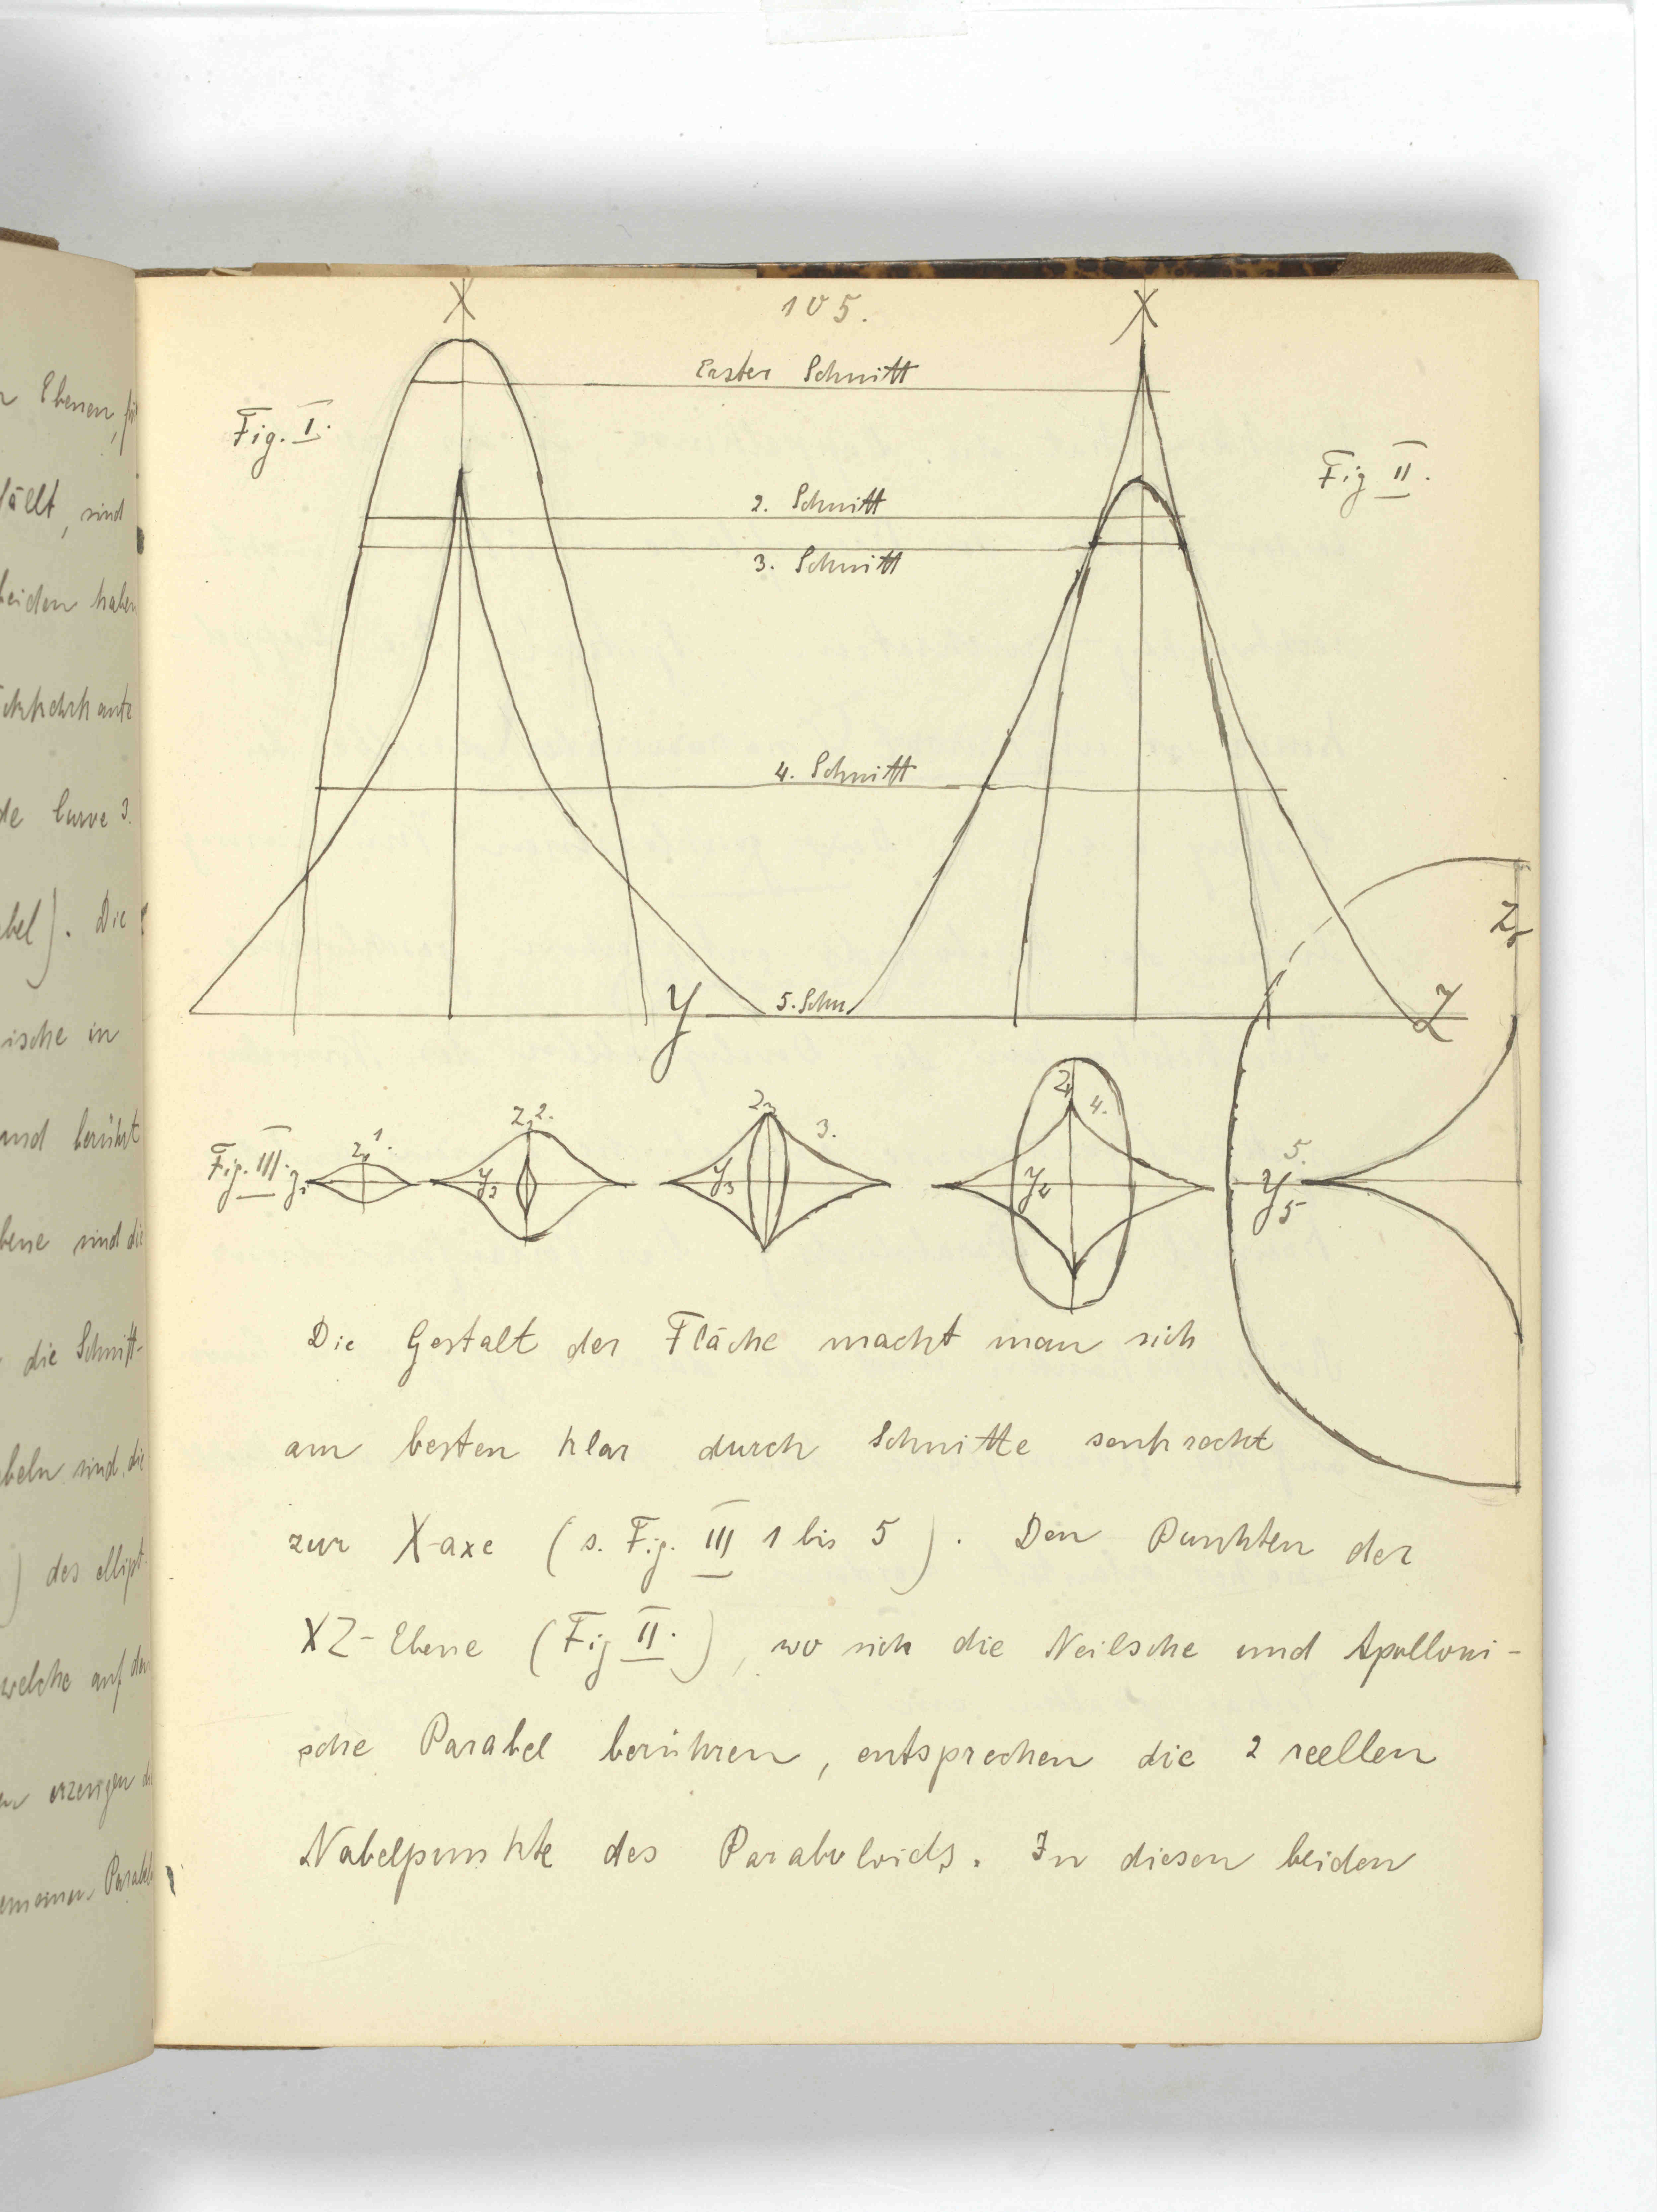 105.
X
X
Erster Schnitt
Fig. I.
Fig II.
2. Schnitt
3. Schnitt
4. Schnitt
Y
5. Schn.
Z
Z5
Fig. III.
1.
Z1
2.
Z2
y2
Z3
3.
y3
Z4
4.
y4
5.
y5
Die Gestalt der Fläche macht man sich
am besten klar durch Schnitte senkrecht
zur X-axe (s. Fig. III 1 bis 5). Den Punkten der
XZ-Ebene (Fig II.), wo sich die Neilsche und Apolloni-
sche Parabel berühren, entsprechen die 2 reellen
Nabelpunkte des Paraboloids. In diesen beiden
n Ebenen, für
fällt, sind
beiden haben
ckkehrkante
de Curve 3.
bel). Die
ische in
und berührt
bene sind die
die Schnitt-
beln sind, die
) des ellipt.
welche auf den
en erzeugen die
emeinen Parabel